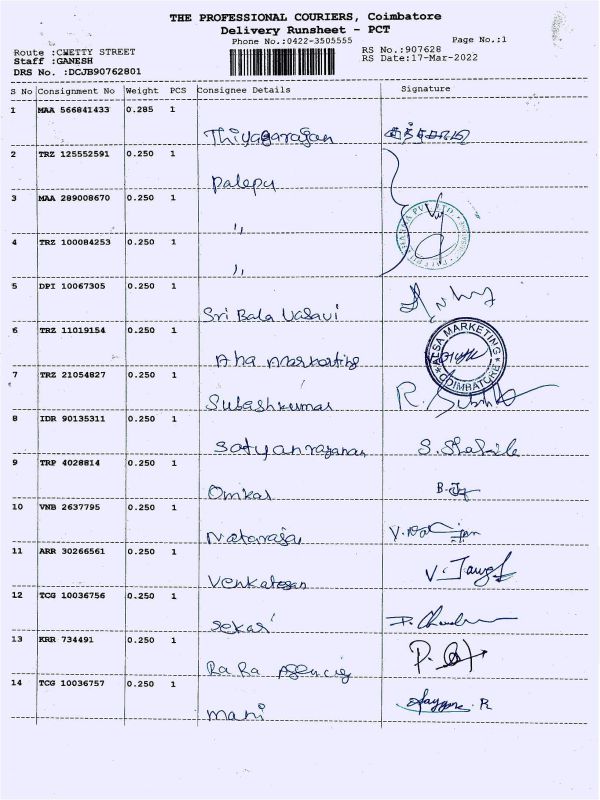 THE PROFESSIONAL COURIERS, Coimbatore
Delivery Runsheet - PCT
Phone No.:0422-3505555
Page No.:1
Route :CHETTY STREET
RS No.:907628
Staff :GANESH
RS Date:17-Mar-2022
DRS No. :DCJB90762801
S No Consignment No Weight PCS Consignee Details Signature
1 MAA 566841433 0.285 1
Thiyagarajan
2 TRZ 125552591 0.250 1
Palepu
3 MAA 289008670 0.250 1
,,
4 TRZ 100084253 0.250 1
,,
5 DPI 10067305 0.250 1
Sri Bala Vasavi
6 TRZ 11019154 0.250 1
AESA MARKETING
COIMBATORE
7 TRZ 21054827 0.250 1
Subashkumar
8 IDR 90135311 0.250 1
9 TRP 4028814 0.250 1
Omkar
10 VNB 2637795 0.250 1
Nataraja
11 ARR 30266561 0.250 1
Venkatesan
12 TCG 10036756 0.250 1
Sekar
13 KRR 734491 0.250 1
Ra Ra Agencig
14 TCG 10036757 0.250 1
mani